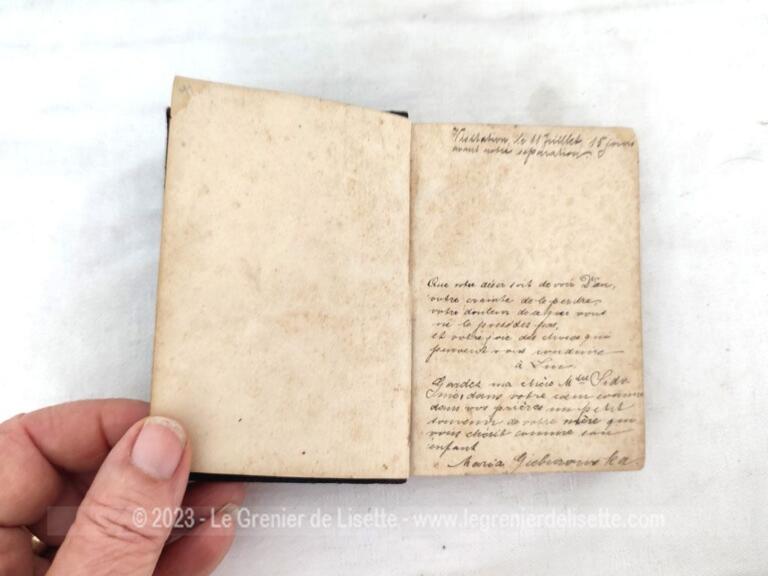 Visitation, le 11 Juillet, 15 jours
avant notre séparation
Que votre désir soit de voir Dieu,
votre crainte de le perdre,
votre douleur de ce que vous
ne le possédez pas,
et votre joie des choses qui
peuvent vous conduire
à Lui
Gardez ma chère Melle
moi dans votre cœur comme
dans vos prières un petit
souvenir de votre mère qui
vous chérit comme son
enfant
Maria
© 2023 - Le Grenier de Lisette - www.legrenierdelisette.com